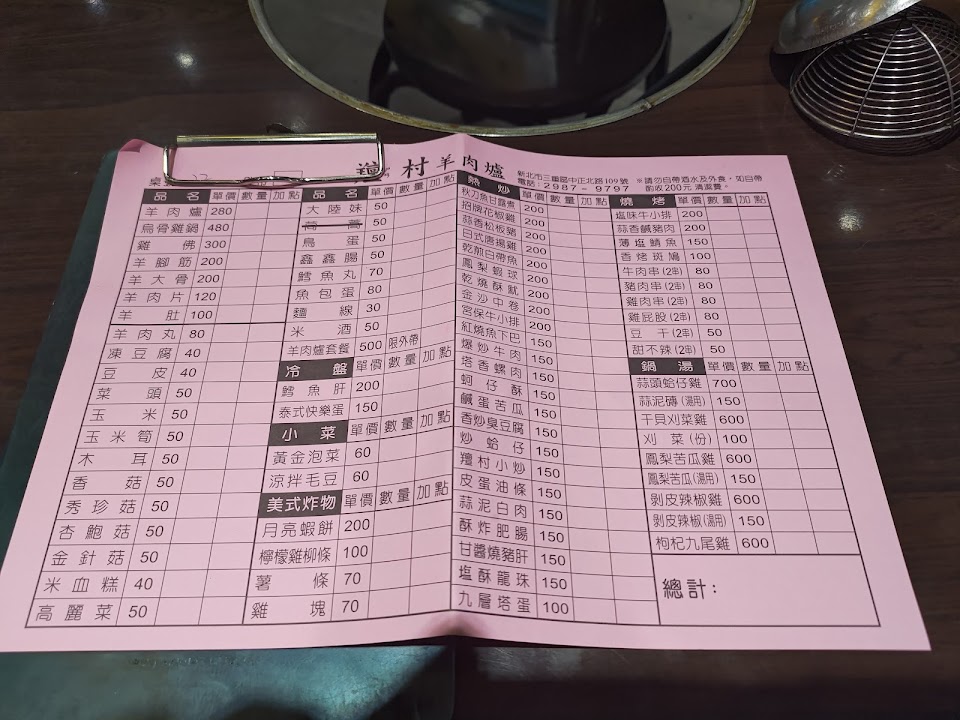 村羊肉爐
新北市三重區中正北路109號
電話：2987-9797
※請勿自帶酒水及外食，如自帶
酌收200元 清潔費。
品名 單價 數量 加點
羊肉爐 280
烏骨雞鍋 480
雞佛 300
羊腳筋 200
羊大骨 200
羊肉片 120
羊肚 100
羊肉丸 80
凍豆腐 40
豆皮 40
菜頭 50
玉米 50
玉米筍 50
木耳 50
香菇 50
秀珍菇 50
杏鮑菇 50
金針菇 50
米血糕 40
高麗菜 50
品名 單價 數量 加點
大陸妹 50
萵 50
鳥蛋 50
鑫鑫腸 50
鱈魚丸 70
魚包蛋 80
麵線 30
米酒 50
羊肉爐套餐 500 限外帶
冷盤 單價 數量 加點
鱈魚肝 200
泰式快樂蛋 150
小菜 單價 數量 加點
黃金泡菜 60
涼拌毛豆 60
美式炸物 單價 數量 加點
月亮蝦餅 200
檸檬雞柳條 100
薯條 70
雞塊 70
熱炒 單價 數量 加點
秋刀魚甘露煮 200
招牌花椒雞 200
蒜香松板豬 200
日式唐揚雞 200
乾煎白帶魚 200
鳳梨蝦球 200
乾燒酥魷 200
金沙中卷 200
宮保牛小排 200
紅燒魚下巴 150
爆炒牛肉 150
塔香螺肉 150
蚵仔酥 150
鹹蛋苦瓜 150
香炒臭豆腐 150
炒蛤仔 150
羶村小炒 150
皮蛋油條 150
蒜泥白肉 150
酥炸肥腸 150
甘醬燒豬肝 150
塩酥龍珠 150
九層塔蛋 100
燒烤 單價 數量 加點
塩味牛小排 200
蒜香鹹豬肉 200
薄塩鯖魚 150
香烤斑鳩 100
牛肉串(2串) 80
豬肉串(2串) 80
雞肉串(2串) 80
雞屁股(2串) 80
豆干(2串) 50
甜不辣(2串) 50
鍋湯 單價 數量 加點
蒜頭蛤仔雞 700
蒜泥磚(湯用) 150
干貝刈菜雞 600
刈菜(份) 100
鳳梨苦瓜雞 600
鳳梨苦瓜(湯用) 150
剝皮辣椒雞 600
剝皮辣椒(湯用) 150
枸杞九尾雞 600
總計：